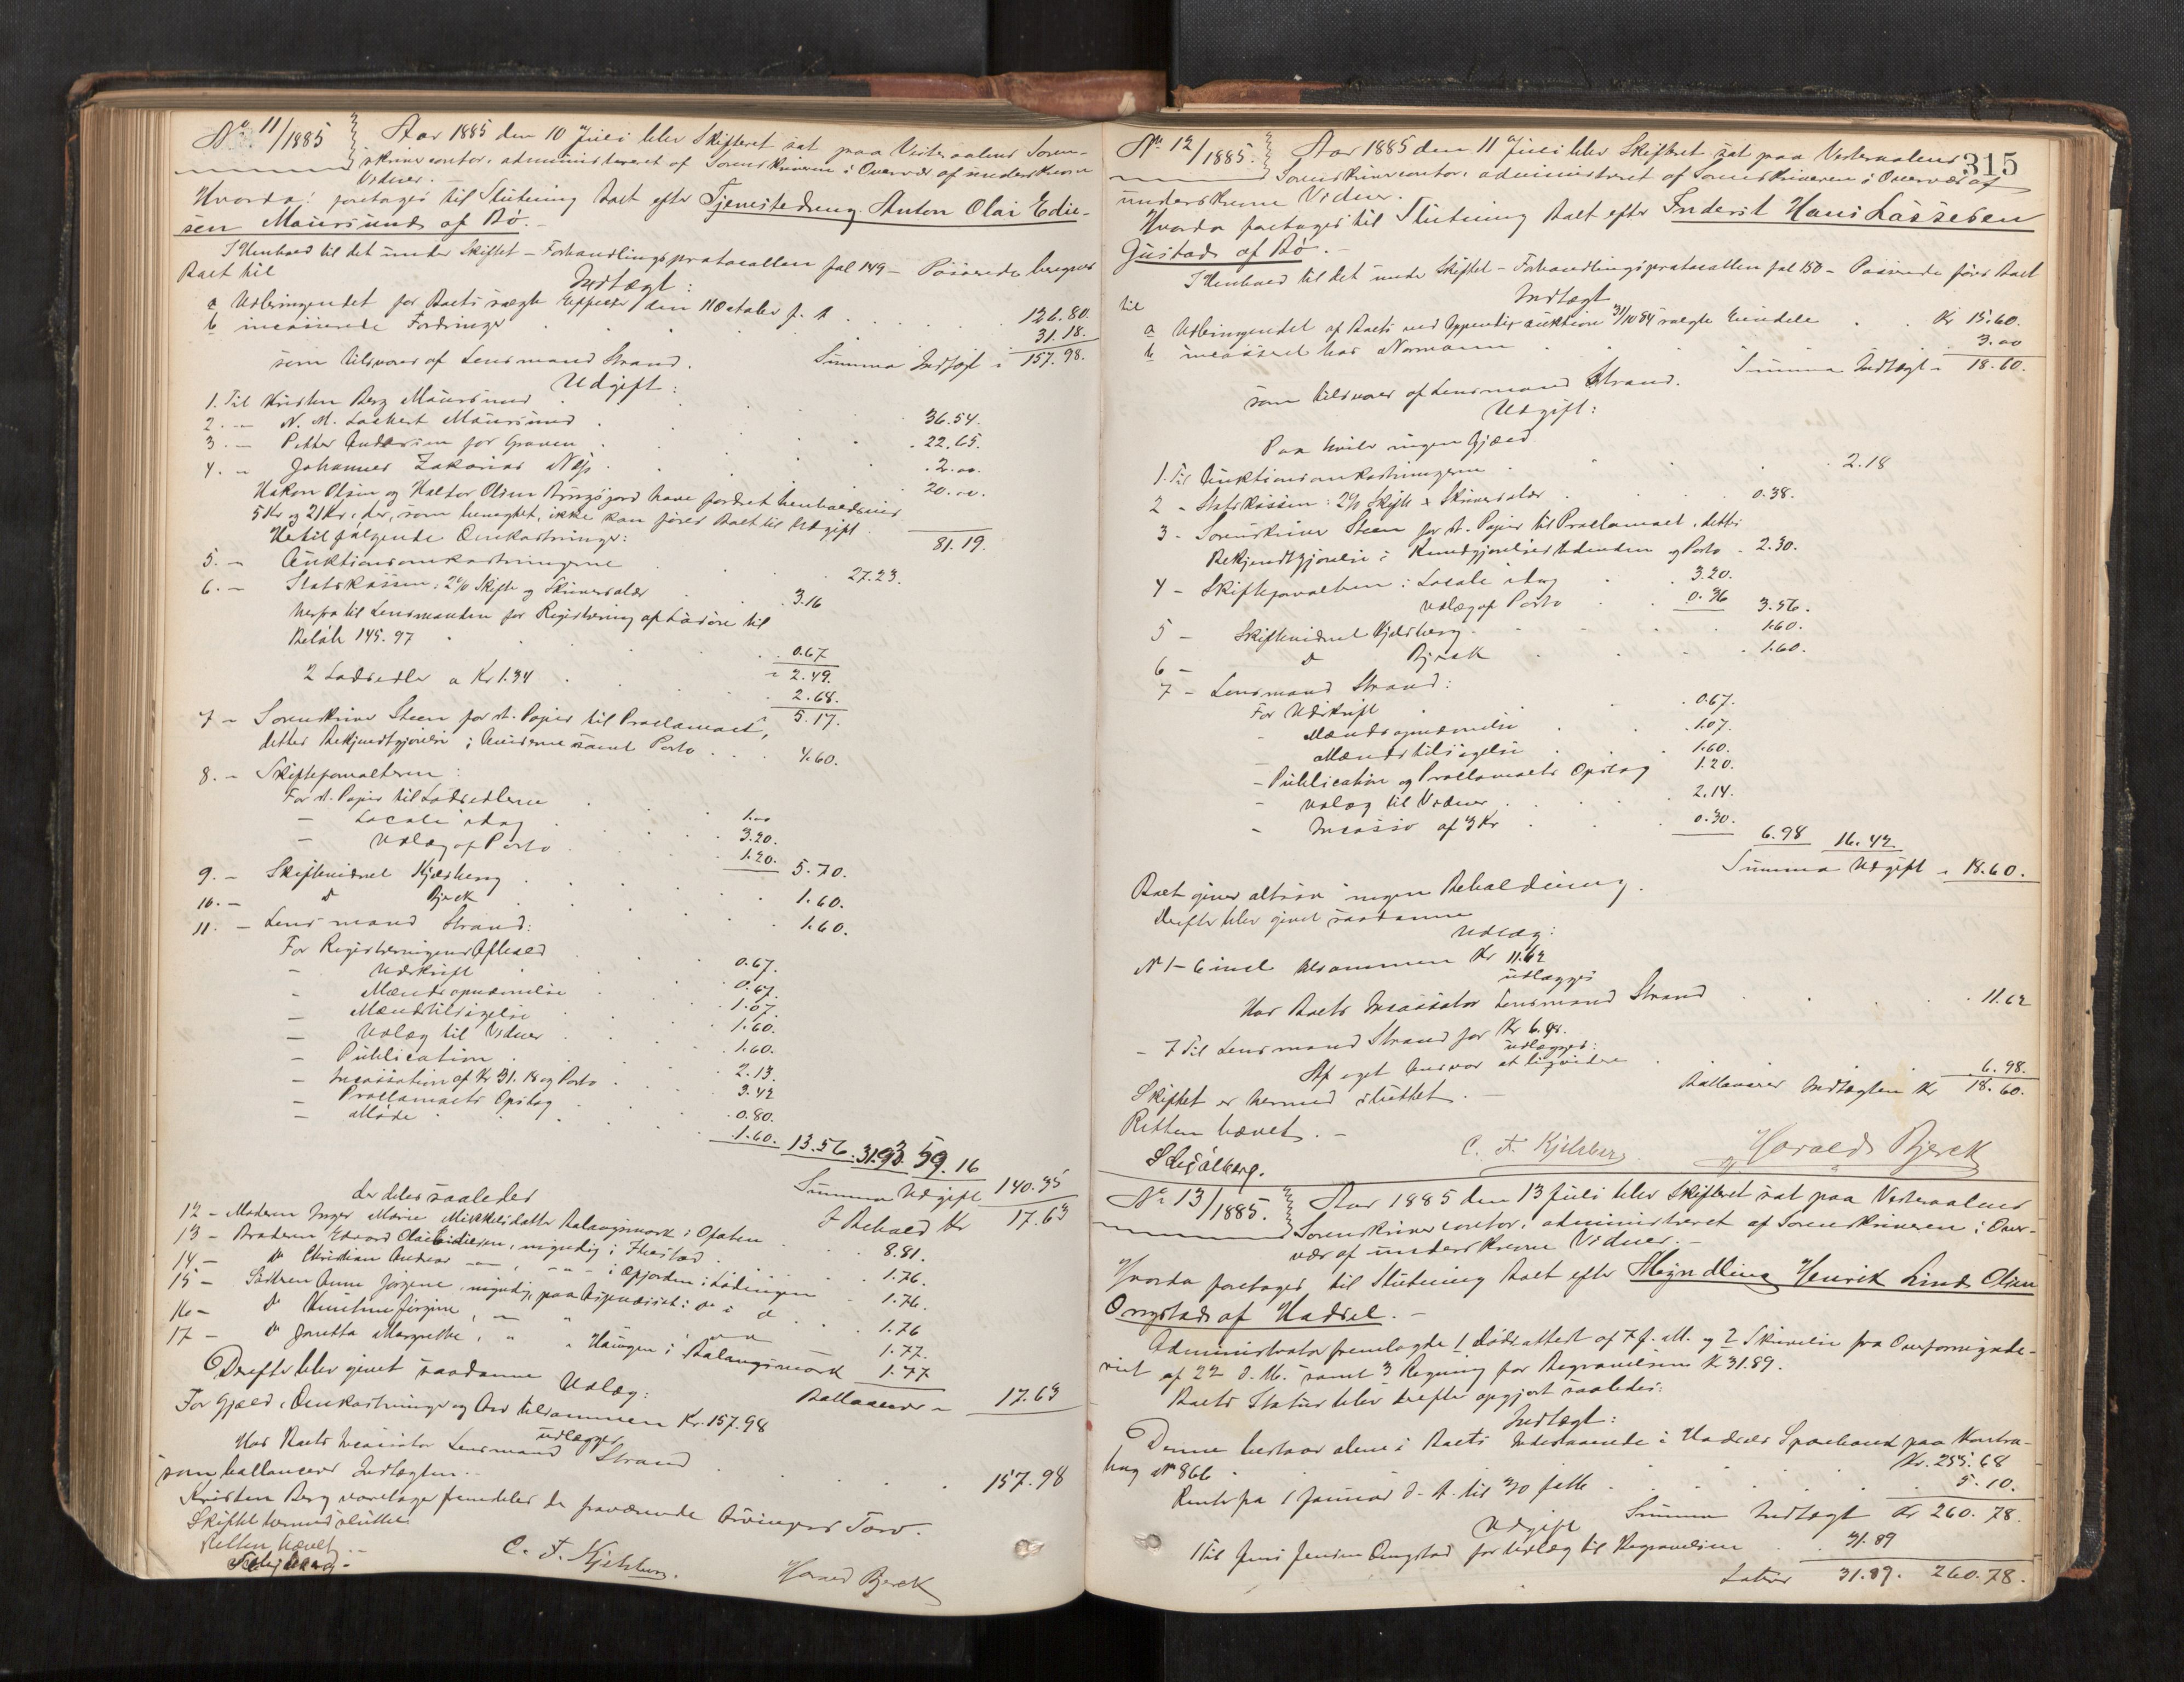 No 11/1885 Aar 1885 den 10 Juli blev Skifteret sat paa Vesteraalens Soren-
skrivercontor, administreret af Sorenskriveren i Overvær af underskrevne
Vidner. -
Hvorda: foretages til Slutning Boet efter Tjenestedreng Anton Olai Edie-
sen Maursund af Bø. -
I Henhold til det under Skiftet - Forhandlingsprotocollen fol 149 - Passerede beregnes
Boet til
Indtægt:
a Udbringendet for Boets solgte Effecter den 11 October f. A . . . 126.80.
b incasserede Fordringer . . . 31.18.
som tilsvares af Lensmand Strand. Summa Indtægt = 157.98.
Udgift:
1. Til Kristen Berg Maursund . . . 36.54.
2. - N. M. Lockert Maursund . . . 22.65.
3. - Petter Andersen for Graven . . . 2.00.
4. - Johannes Zakarias . . . 20.00.
Hakon Olsen og Haltor Olsen have fordret henholdsvis
5 Kr og 21 Kr, der, som benegtet, ikke kan føres Boet til Udgift. 81.19.
Hertil følgende Omkostninger:
5. - Auktionsomkostningerne . . . 27.23.
6. - Statskassen: 2% Skifte og Skriversalær . . . 3.16
herfra til Lensmanden for Registrering af Løsøre til
Beløb 145.97 . . . 0.67
= 2.49.
2 Lodsedler a Kr 1.34 . . . 2.68.
5.17.
7 - Sorenskriver Steen for st. Papir til Proclamaet,
dettes Bekjendtgjørelse i Aviserne samt Porto . . . 4.60.
8. - Skifteforvalteren:
For st. Papir til Lodsedlerne . . . 1.00
- Locale idag . . . 3.20.
- Udlæg af Porto . . . 1.20. 5.70.
9. - Skiftevidnet Kjelsberg . . . 1.60.
10. - do Bjerck . . . 1.60.
11. - Lensmand Strand:
For Registreringens Afhold . . . 0.67.
- Udskrift . . . 0.67.
- Mændsopnævnelse . . . 1.07.
- Mændstilsigelse . . . 1.60.
- Udlæg til Vidner . . . 1.60.
- Publication . . . 2.13.
- Incassation af Kr 31.18 og Porto . . . 3.42
- Proclamaets Opslag . . . 0.80.
- Møde . . . 1.60. 13.56. 59.16
Summa Udgift 140.35
I Behold Kr 17.63
der deles saaledes
12 - Moderen Inger Marie Mikkelsdatter Balangsmark i Ofoten . . . 8.81.
13 - Broderen Edvard Olai Ediesen, myndig i . . . 1.76.
14 - do Christian Andreas -"- , -"- i Øxfjorden i Lødingen . . . 1.76.
15 - Søstren Anne Jørgine, myndig, paa do i d . . . 1.76
16 - do Kristine Jørgine, -"- . . . 1.77.
17 - do Jonetta Margrethe, " " Haugen i Balangsmark 1.77
Ballancerer = 17.63
Derefter blev givet saadanne Udlæg:
For Gjæld, Omkostninger og Arv tilsammen Kr. 157.98
udlægges
Hos Boets Incassator Lensmand Strand . . . 157.98
som ballancerer Indtægten. -
Kristen Berg varetager fremdeles de fraværende Arvingers Tarv.
Skiftet hermed sluttet.
Retten hævet. -
C. F. Kjelsberg. Harald Bjerck
315
No 12/1885. Aar 1885 den 11 Juli blev Skifteret sat paa Vesteraalens
Sorenskrivercontor, administreret af Sorenskriveren i Overvær af
underskrevne Vidner. -
Hvorda foretages til Slutning Boet efter Inderst Hans Lassesen
Gustad af Bø. -
I Henhold til det under Skiftet - Forhandlingsprotocollen fol 150 - Passerede føres Boet
til
Indtægt
a Udbringendet af Boets ved Appendix auktion 31/10 84 solgte Eiendele . . Kr 15.60.
b incasseret hos Normann . . . 3.00
som tilsvares af Lensmand Strand. Summa Indtægt = 18.60.
Udgift:
Paa hviler ingen Gjæld
1. Til Auktionsomkostningerne . . . 2.18
2 - Statskassen: 2% Skifte & Skriversalær . . . 0.38.
3 - Sorenskriver Steen for st. Papir til Proclamaet, dettes
Bekjendtgjørelse i Kundgjørelsestidenden og Porto - 2.30.
4 - Skifteforvalteren: Locale idag . . . 3.20.
Udlæg af Porto . . . 0.36 3.56.
5 - Skiftevidnet Kjelsberg . . . 1.60.
6 - d Bjerck . . . 1.60.
7 - Lensmand Strand:
For Udskrift . . . 0.67.
- Mændsopnævnelse . . . 1.07.
- Mændstilsigelse . . . 1.60.
- Publication og Proclamaets Opslag 1.20.
- Udlæg til Vidner . . . 2.14.
- Incasso af 3 Kr . . . 0.30. 6.98 16.42.
Summa Udgift = 18.60.
Boet giver altsaa ingen Beholdning.
Derefter blev givet saadanne
Udlæg:
No 1-6 incl tilsammen Kr 11.62
udlægges
Hos Boets Incassator Lensmand Strand . . . 11.62
- 7 Til Lensmand Strand for Kr 6.98.
udlægges:
Af eget Ansvar at liqvidere . . . 6.98.
Skiftet er hermed sluttet. - Ballancerer Indtægten Kr 18.60.
Retten hævet. -
C. F. Kjelsberg. Harald Bjerck
No 13/1885. Aar 1885 den 13 Juli blev Skifteret sat paa Vesteraalens
Sorenskrivercontor, administreret af Sorenskriveren i Over-
vær af underskrevne Vidner. -
Hvorda foretages til Slutning Boet efter Myndling Henrik Lind Olsen
Ongstad af Hadsel. -
Administrator fremlagde 1 Dødsattest af 7 f. M. og 2 Skrivelse fra Overformynde-
riet af 22 d. M. samt 3 Regning for Begravelsen Kr 31.89.
Boets Status blev derefter opgjort saaledes:
Indtægt:
Denne bestaar alene i Boets Indestaaende i Hadsels Sparebank paa Kontra-
bog No 866 . . . Kr. 255.68
Rente fra 1 Januar d. A. til . . . 5.10.
Summa Indtægt Kr 260.78.
Udgift
1 Til Jens Jensen Ongstad for Udlæg til Begravelsen . . 31.89
Latus 31.89. 260.78.